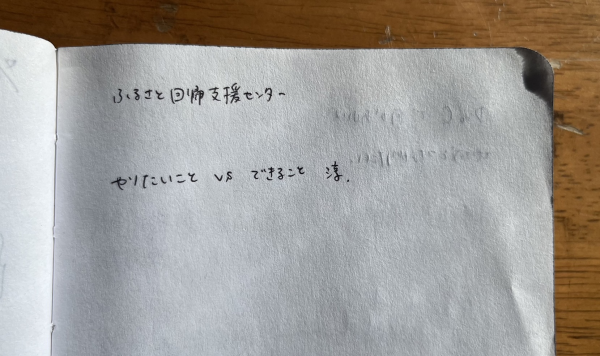 ふるさと回帰支援センター
やりたいこと vs できること 淳.